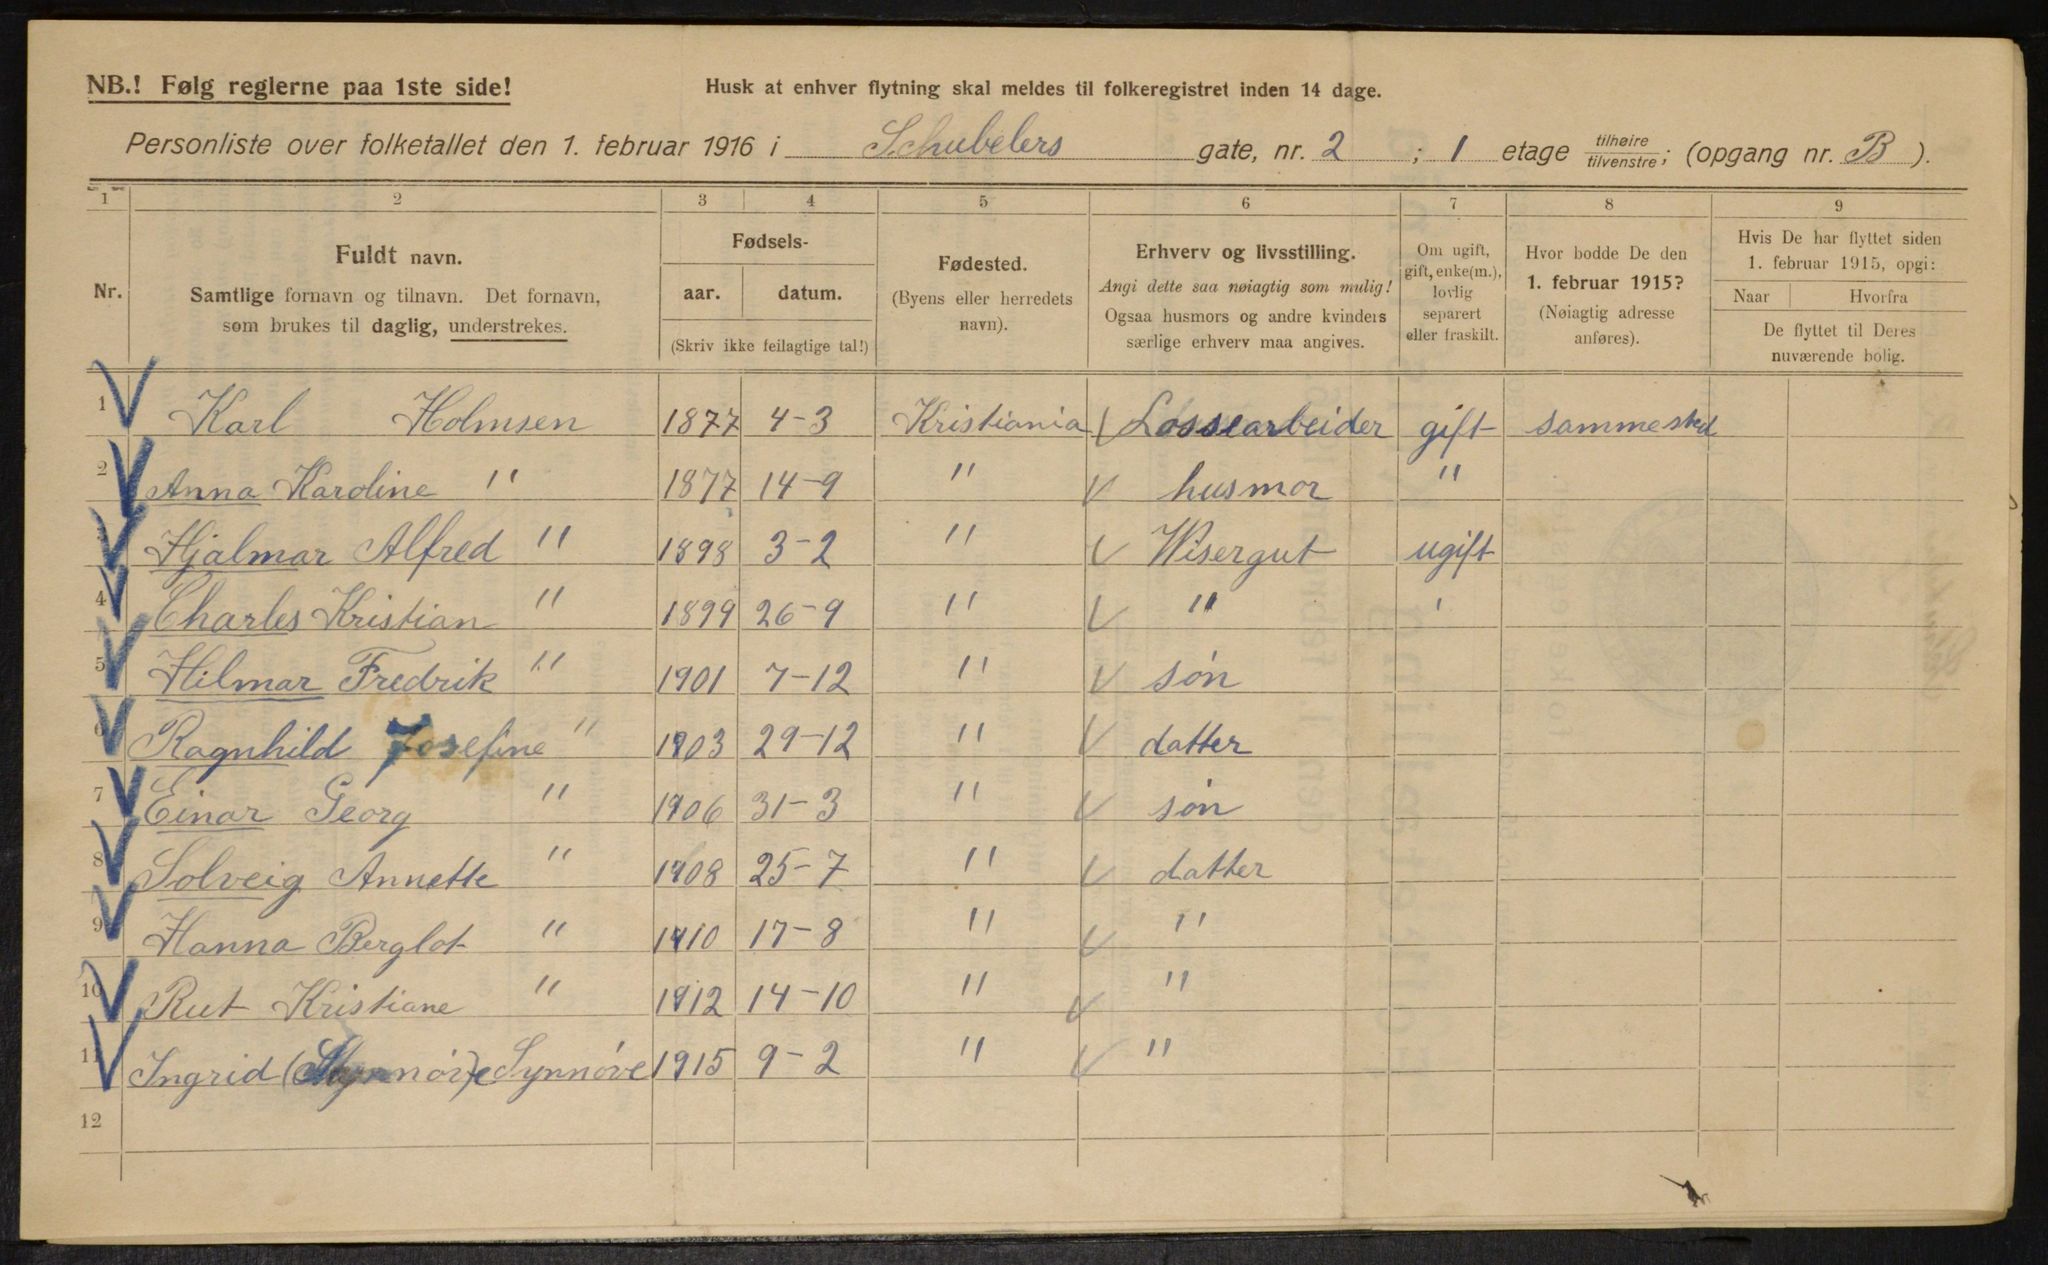 NB.! Følg reglerne paa 1ste side!
Husk at enhver flytning skal meldes til folkeregistret inden 14 dage.
Personliste over folketallet den 1. februar 1916 i Schubelers gate, nr. 2 ; 1 etage tilhøire/tilvenstre; (opgang nr. B ).
1 2 3 4 5 6 7 8 9
Nr.
Fuldt navn.
Samtlige fornavn og tilnavn. Det fornavn,
som brukes til daglig, understrekes.
Fødsels-
aar. datum.
(Skriv ikke feilagtige tal!)
Fødested.
(Byens eller herredets
navn).
Erhverv og livsstilling.
Angi dette saa nøiagtig som mulig!
Ogsaa husmors og andre kvinders
særlige erhverv maa angives.
Om ugift,
gift, enke(m.),
lovlig
separert
eller fraskilt.
Hvor bodde De den
1. februar 1915?
(Nøiagtig adresse
anføres).
Hvis De har flyttet siden
1. februar 1915, opgi:
Naar Hvorfra
De flyttet til Deres
nuværende bolig.
1 Karl Holmsen 1877 4-3 Kristiania Lossearbeider gift sammested
2 Anna Karoline " 1877 14-9 " husmor "
3 Hjalmar Alfred " 1898 3-2 " Wisergut ugift
4 Charles Kristian " 1899 26-9 " " '
5 Hilmar Fredrik " 1901 7-12 " søn
6 Ragnhild Josefine " 1903 29-12 " datter
7 Einar Georg " 1906 31-3 " søn
8 Solveig Annette " 1908 25-7 " datter
9 Hanna Berglot " 1910 17-8 " "
10 Rut Kristiane " 1912 14-10 " "
11 Ingrid Synnøve 1915 9-2 " "
12